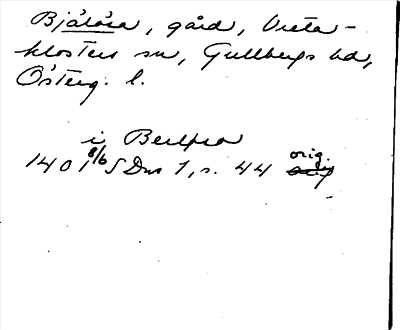 Bjälösa, gård, Vreta-
klosters sn, Gullbergs hd,
Österg. l.
i Berlfsa
1401 8/6 SDns 1, s. 44 orig.